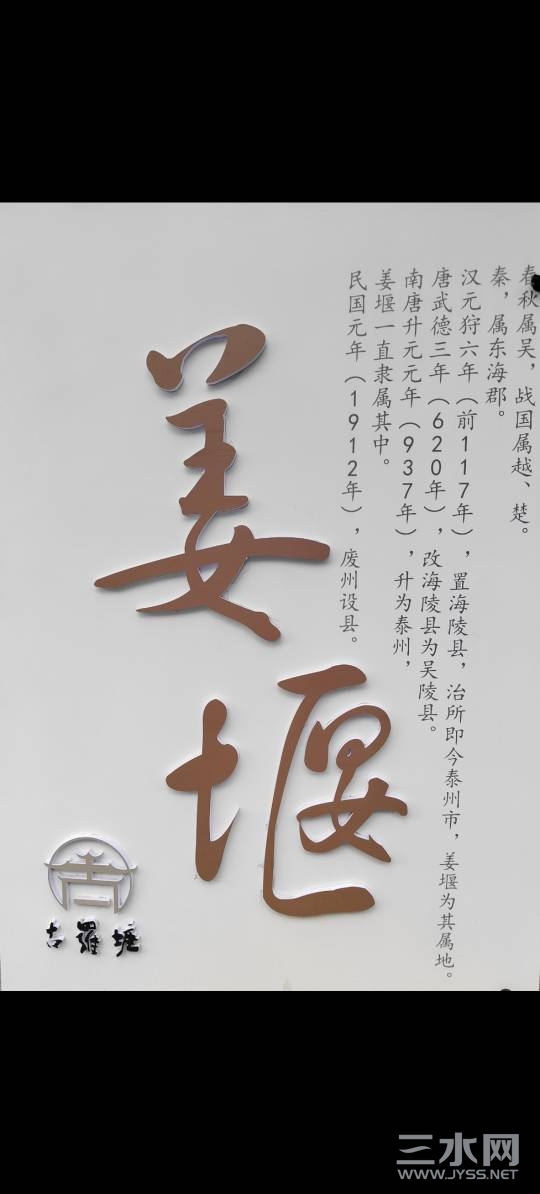 春秋属吴，战国属越、楚。
秦，属东海郡。
汉元狩六年（前117年），置海陵县，治所即今泰州市，姜堰为其属地。
唐武德三年（620年），改海陵县为吴陵县。
南唐升元元年（937年），升为泰州，
姜堰一直隶属其中。
民国元年（1912年），废州设县。
姜堰
古羅塘
三水网
WWW.JYSS.NET